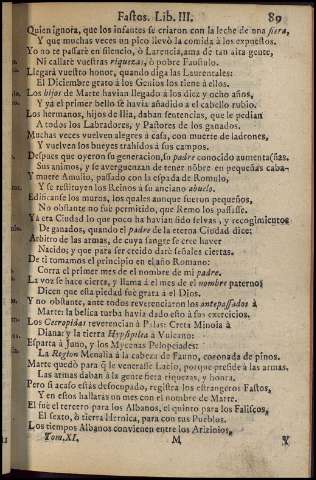 Fastos. Lib. III. 89
Quien ignora, que los infantes se criaron con la leche de una fiera,
Y que muchas veces un pico llevò la comida à los expuestos.
Yo no te passarè en silencio, ò Larencia, ama de tan alta gente,
Ni callarè vuestras riquezas, ò pobre Faustulo.
Llegarà vuestro honor, quando diga las Laurentales:
El Diciembre grato à los Genios los tiene à ellos.
Los hijos de Marte havian llegado à los diez y ocho años,
Y yà el primer bello se havia añadido a el cabello rubio.
Los hermanos, hijos de Ilia, daban sentencias, que le pedian
A todos los Labradores, y Pastores de los ganados.
Muchas veces vuelven alegres à casa, con muerte de ladrones,
Y vuelven los bueyes trahidos à sus campos.
Despues que oyeron su generacion, su padre conocido aumenta sus
Sus animos, y se averguenzan de tener nõbre en pequeñas
Y muere Amulio, passado con la espada de Romulo,
Y se restituyen los Reinos à su anciano abuelo.
Edificanse los muros, los quales aunque fueron pequeños,
No obstante no fuè permitido, que Remo los passasse.
Yà era Ciudad lo que poco ha havian sido selvas, y recogimientos
De ganados, quando el padre de la eterna Ciudad dice:
Arbitro de las armas, de cuya sangre se cree haver
Nacido; y que para ser creido darè señales ciertas.
De ti tomamos el principio en elaño Romano:
Corra el primer mes de el nombre de mi padre.
La voz se hace cierta, y llama à el mes de el nombre paterno;
Dicen que esta piedad fuè grata à el Dios.
Y no obstante, ante todos reverenciaron los antepassados à
Marte: la belica turba havia dado esto à sus exercicios.
Los Cecropidas reverencian à Palas: Creta Minoia à
Diana: y la tierra Hypsipilea à Vulcano:
Esparta à Juno, y los Mycenas Pelopeiades:
La Region Menalia à la cabeza de Fauno, coronada de pinos.
Marte quedò para q̃ le venerasse Lacio, porque preside à las armas.
Las armas daban à la gente fiera riquezas, y honra.
Pero si acaso estàs desocupado, registra los estrangeros Fastos,
Y en estos hallaràs un mes con el nombre de Marte.
El fuè el tercero para los Albanos, el quinto para los Faliscos,
El sexto, ò tierra Hernica, para con tus Pueblos.
Los tiempos Albanos convienen entre los Aricinios,
Tom. XI. M Y